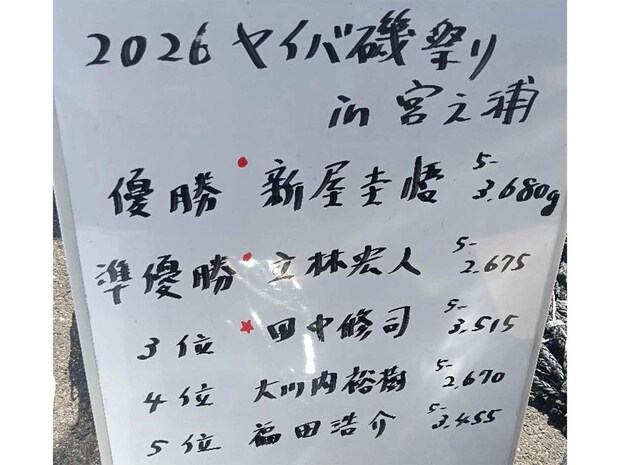 2026 ヤイバ磯祭り
in 宮之浦
優勝 新屋圭悟 5- 3,680g
準優勝 立林宏人 5- 2.675
3位 田中修司 5- 3,515
4位 大川内裕樹 5- 2,670
5位 福田浩介 5- 3.455